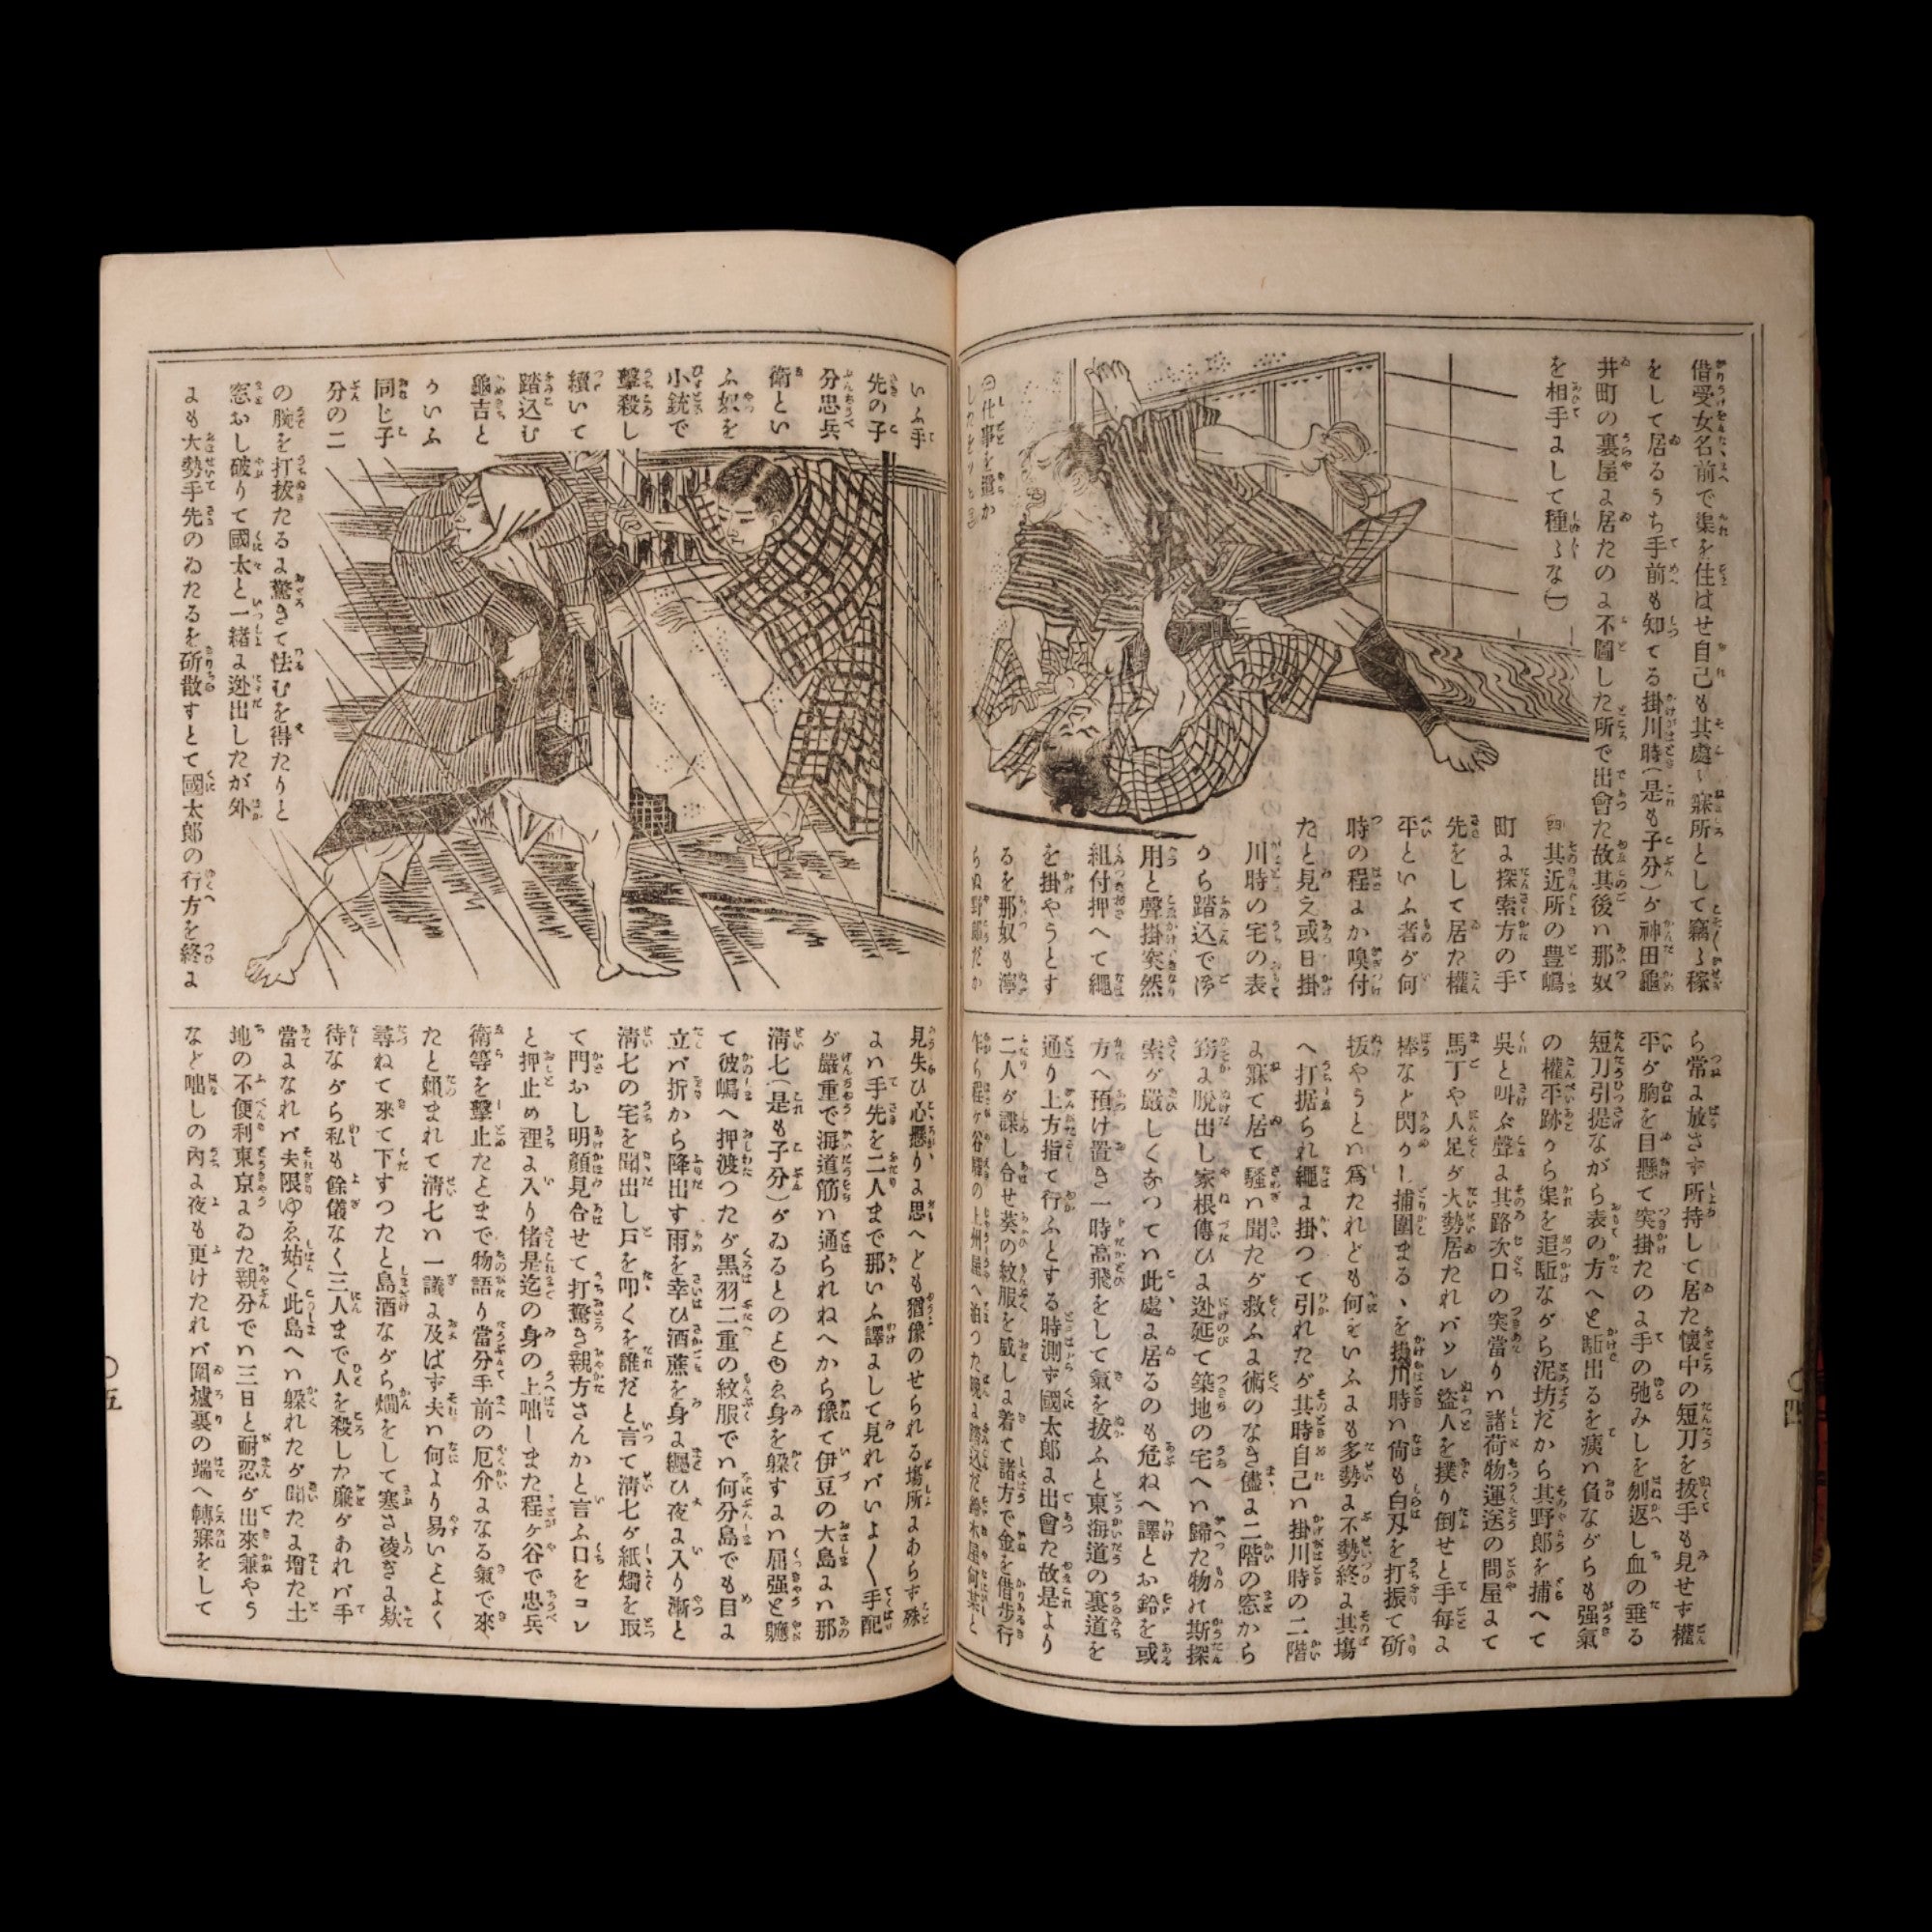 借受女名前で渠を住はせ自己も其處を寐所として竊々稼
をして居るうち手前も知てる掛川時(是も子分)が神田龜
井町の裏屋に居たのに不圖した所で出會た故其後ハ那奴
を相手にして種々な㊀
㊁仕事を遣か
其近所の豊嶋
町に探索方の手
先をして居た權
平といふ者が何
時の程にか嗅付
たと見え或日掛
川時の宅の表
から踏込で御
用と聲掛突然
組付押へて繩
を掛やうとす
るを那奴も濘
らぬ野郎だか
ら常に放さず所持して居た懷中の短刀を抜手も見せず權
平が胸を目懸て突掛たのに手の弛みしを刎返し血の垂る
短刀引提ながら表の方へと駈出るを痍ハ負ながらも强氣
の權平跡から渠を追駈ながら泥坊だから其野郎を捕へて
呉と叫ぶ聲に其路次口の突當りハ諸荷物運送の問屋にて
馬丁や人足が大勢居たれバソレ盗人を撲り倒せと手毎に
棒など閃かし捕圍まるゝを掛川時ハ尙も白刄を打振て斫
抜やうとハ爲たれども何をいふにも多勢に不勢終に其塲
へ打据られ繩に掛つて引れたが其時自己ハ掛川時の二階
に寐て居て騒ハ聞たが救ふに術のなき儘に二階の窓から
竊に脱出し家根傳ひに迯延て築地の宅へハ歸た物の斯探
索が嚴しくなつてハ此處に居るのも危ねへ譯とお鈴を或
方へ預け置き一時高飛をして氣を抜ふと東海道の裏道を
通り上方指て行ふとする時測ず國太郎に出會た故是より
二人が諜し合せ葵の紋服を威しに着て諸方で金を借歩行
乍ら程ケ谷驛の上州屋へ泊つた晩に踏込だ鈴木屋何某と
いふ手
先の子
分忠兵
衛とい
ふ奴を
小銃で
擊殺し
續いて
踏込む
龜吉と
かいふ
同じ子
分の二
の腕を打抜たるに驚きて怯むを得たりと
窓おし破りて國太と一緒に迯出したが外
にも大勢手先のゐたるを斫散すとて國太郎の行方を終に
見失ひ心懸りに思へども猶像のせられる塲所にあらず殊
にハ手先を二人まで那いふ譯にして見れバいよ〱手配
が嚴重で海道筋ハ通られねへから豫て伊豆の大島に那
淸七(是も子分)がゐるとのとゆゑ身を躱すにハ屈强と軈
て彼嶋へ押渡つたが黒羽二重の紋服でハ何分島でも目に
立バ折から降出す雨を幸ひ酒蔗を身に纒ひ夜に入り漸と
淸七の宅を聞出し戸を叩くを誰だと言て淸七が紙燭を取
て門おし明顔見合せて打驚き親方さんかと言ふ口をコレ
と押止め裡に入り偖是迄の身の上咄しまた程ケ谷で忠兵
衛等を擊止たとまで物語り當分手前の厄介になる氣で來
たと賴まれて淸七ハ一議に及ばず夫ハ何より易いとよく
尋ねて來て下すつたと島酒ながら燗をして寒さ凌ぎに欵
待ながら私も餘儀なく三人まで人を殺した廉があれバ手
當になれバ夫限ゆゑ姑く此島へハ躱れたが聞たに增た土
地の不便利東京にゐた親分でハ三日と耐忍が出來兼やう
など咄しの內に夜も更けたれバ圍爐裏の端へ轉寐をして
○四
○五